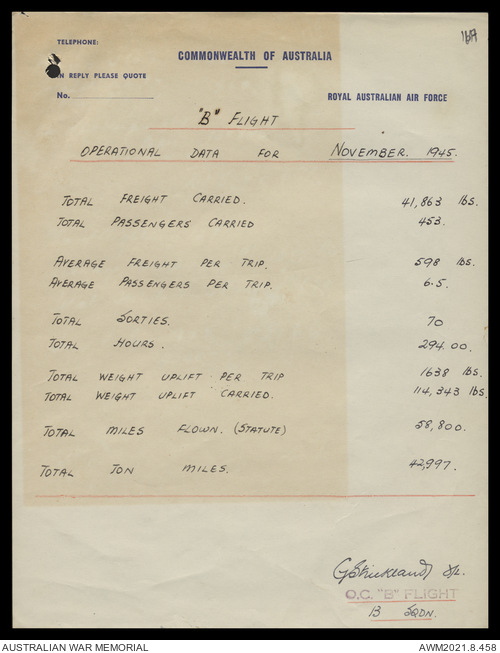 169
TELEPHONE:
COMMONWEALTH OF AUSTRALIA
IN REPLY PLEASE QUOTE
No.
ROYAL AUSTRALIAN AIR FORCE
"B" FLIGHT
OPERATIONAL DATA FOR NOVEMBER. 1945.
TOTAL FREIGHT CARRIED. 41,863 lbs.
TOTAL PASSENGERS CARRIED 453.
AVERAGE FREIGHT PER TRIP. 598 lbs.
AVERAGE PASSENGERS PER TRIP. 6.5.
TOTAL SORTIES. 70
TOTAL HOURS. 294.00.
TOTAL WEIGHT UPLIFT PER TRIP 1638 lbs.
TOTAL WEIGHT UPLIFT CARRIED. 114,343 lbs.
TOTAL MILES FLOWN. (STATUTE) 58,800.
TOTAL TON MILES. 42,997.
GStrickland F/L.
O.C. "B" FLIGHT
B SQDN.
AUSTRALIAN WAR MEMORIAL
AWM2021.8.458